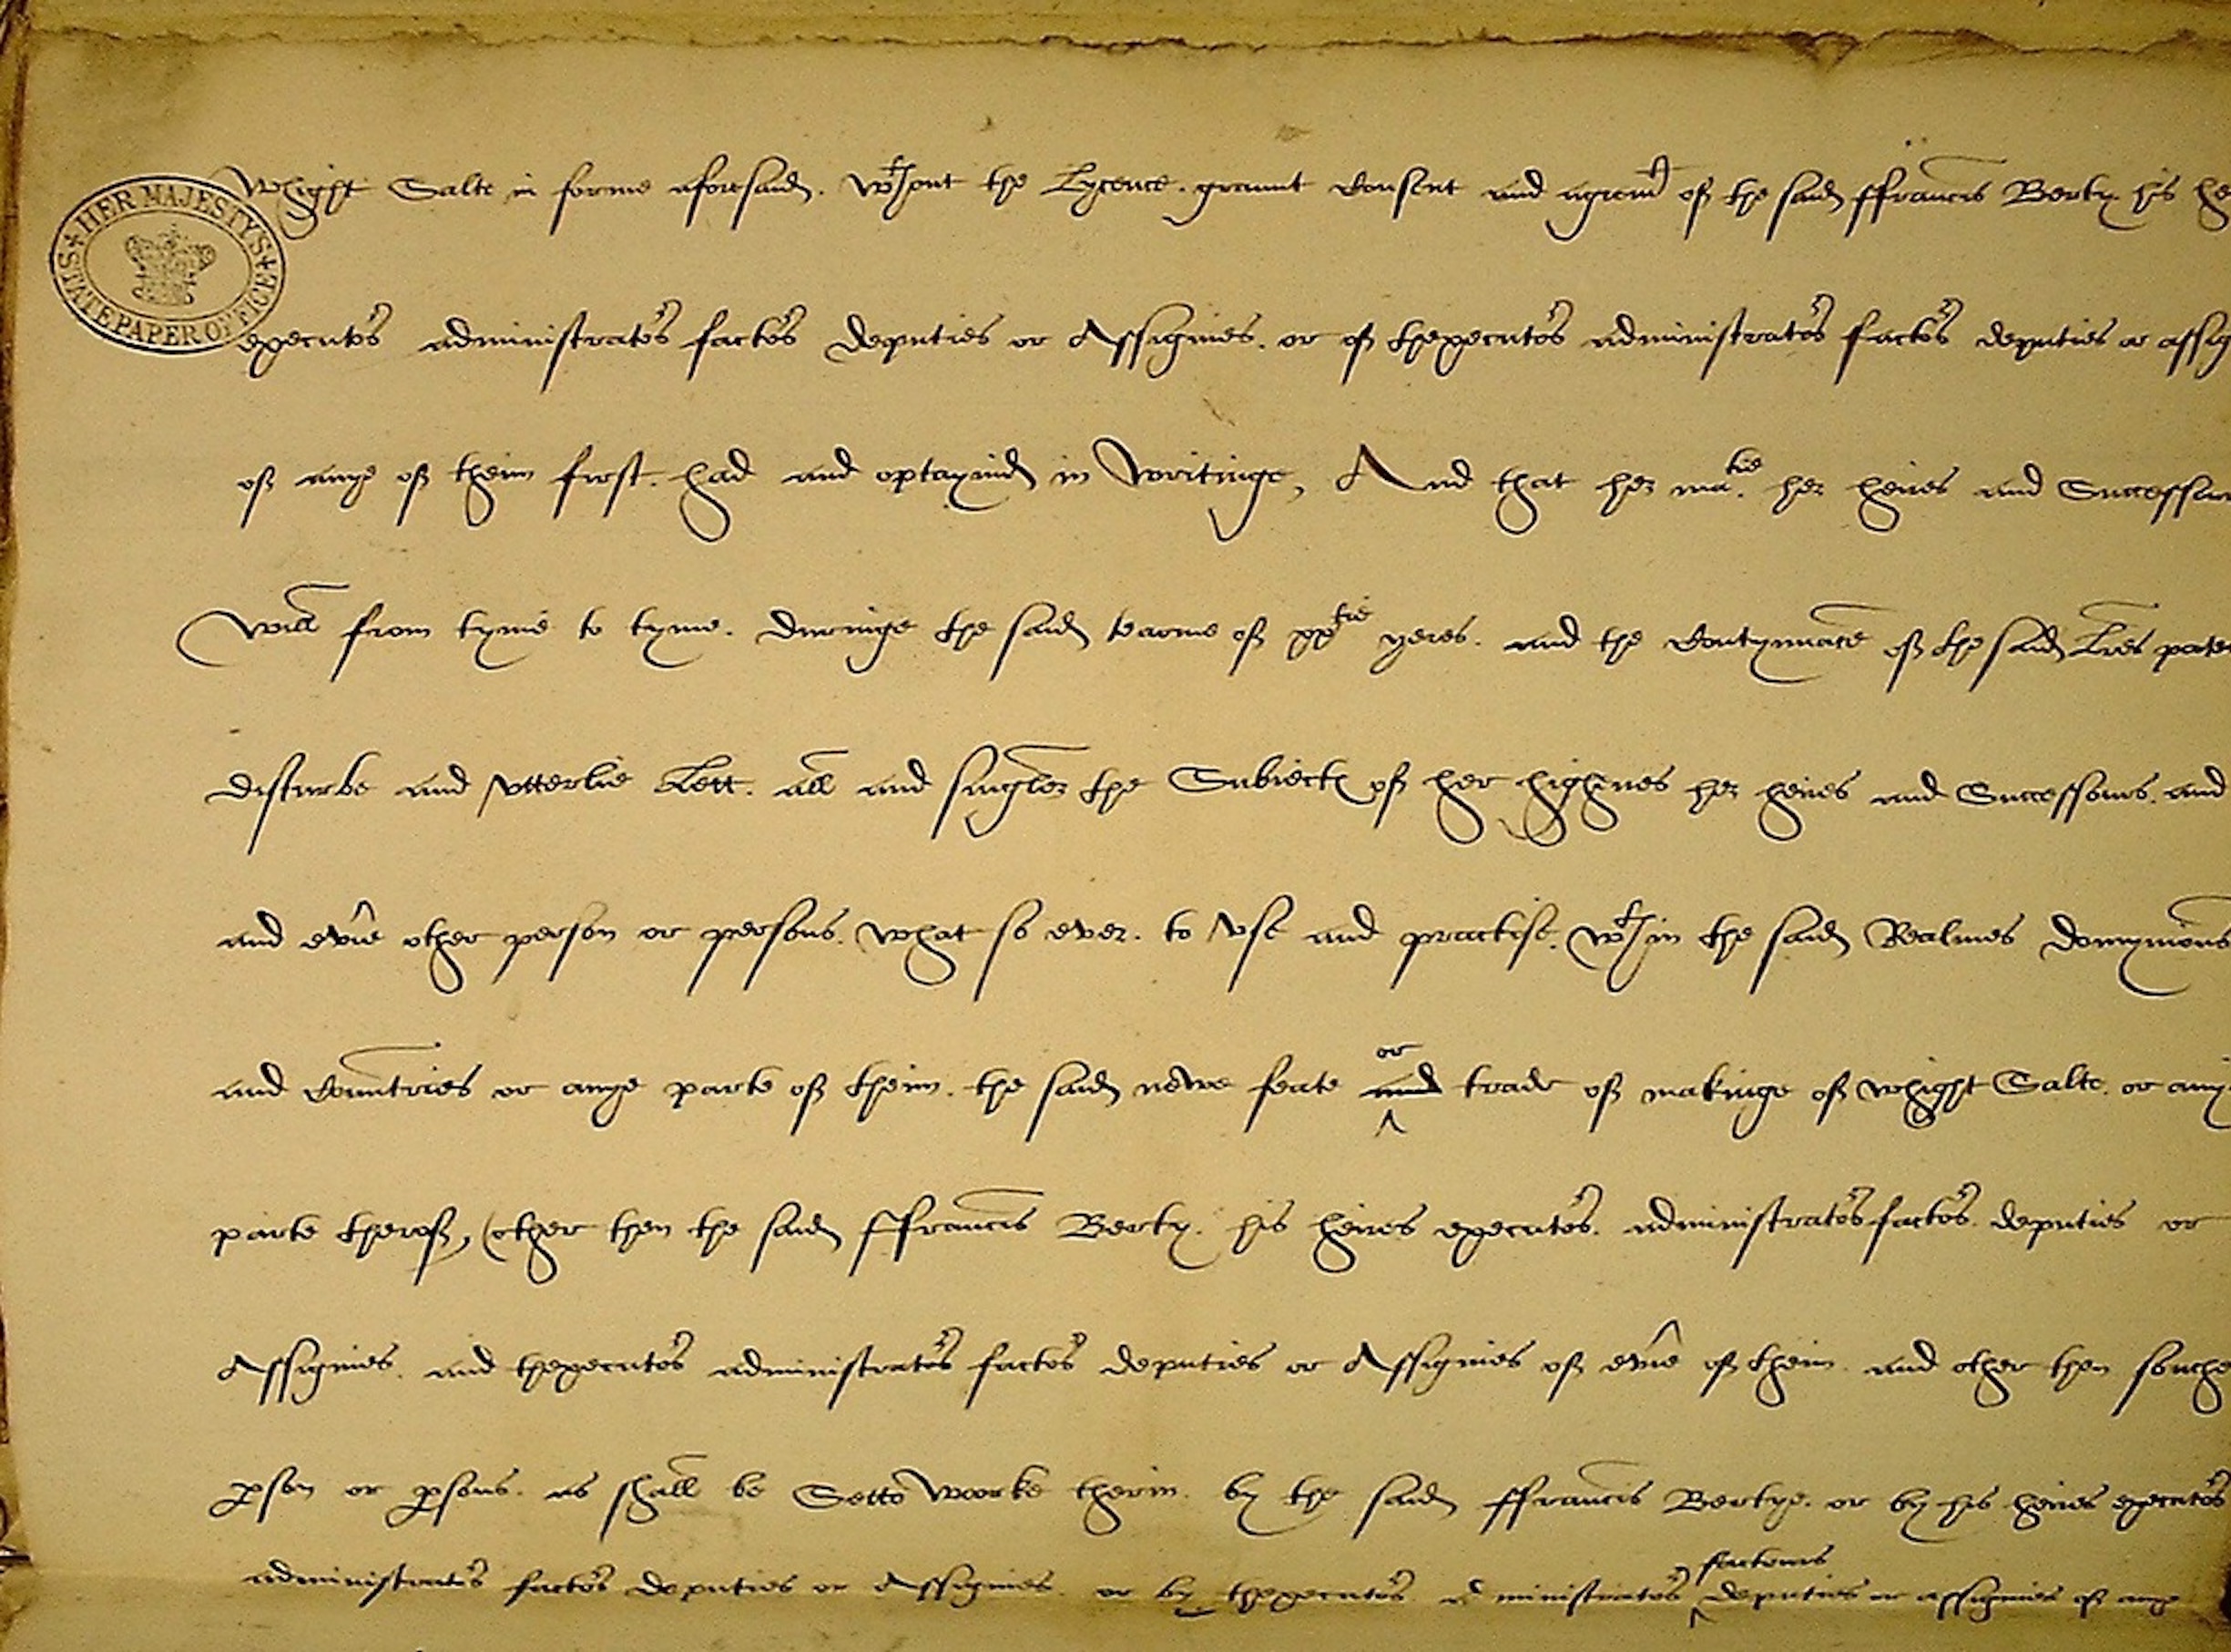 HER MAJESTY'S STATE PAPER OFFICE
Whight Salte in forme aforesaid. wthout the Lycence. graunt Consent and agremt of the said ffrancis Berty his he
executors administrators factors deputies or Assignies. or of thexecutors administrators factors deputies or assig
of anye of theim first. had and optaynid in Writinge, And that her matie. her heires and Successou
Will from tyme to tyme. duringe the said tearme of xxtie yeres. and the Contynuance of the said Lres paten
disturbe and vtterlie Lett. all and singler the Subiectes of her highnes her heires and Successours. and
and evrie other person or persons. what so ever. to vse and practise. wthin the said Realmes domynions
and Countries or anye parte of theim. the said newe feate or and trade of makinge of whight Salte. or any
parte therof, (other then the said ffrancis Berty. his heires executors. administrators factors. deputies or
Assignies. and thexecutors administrators factors deputies or Assignies of evrie of theim. and other then souche
pson or psons. as shall be Setto Woorke therin. by the said ffrancis Bertye. or by his heires executors
administrators factors deputies or Assignies. or by thexecutors. administrators factours deputies or assignies of anye